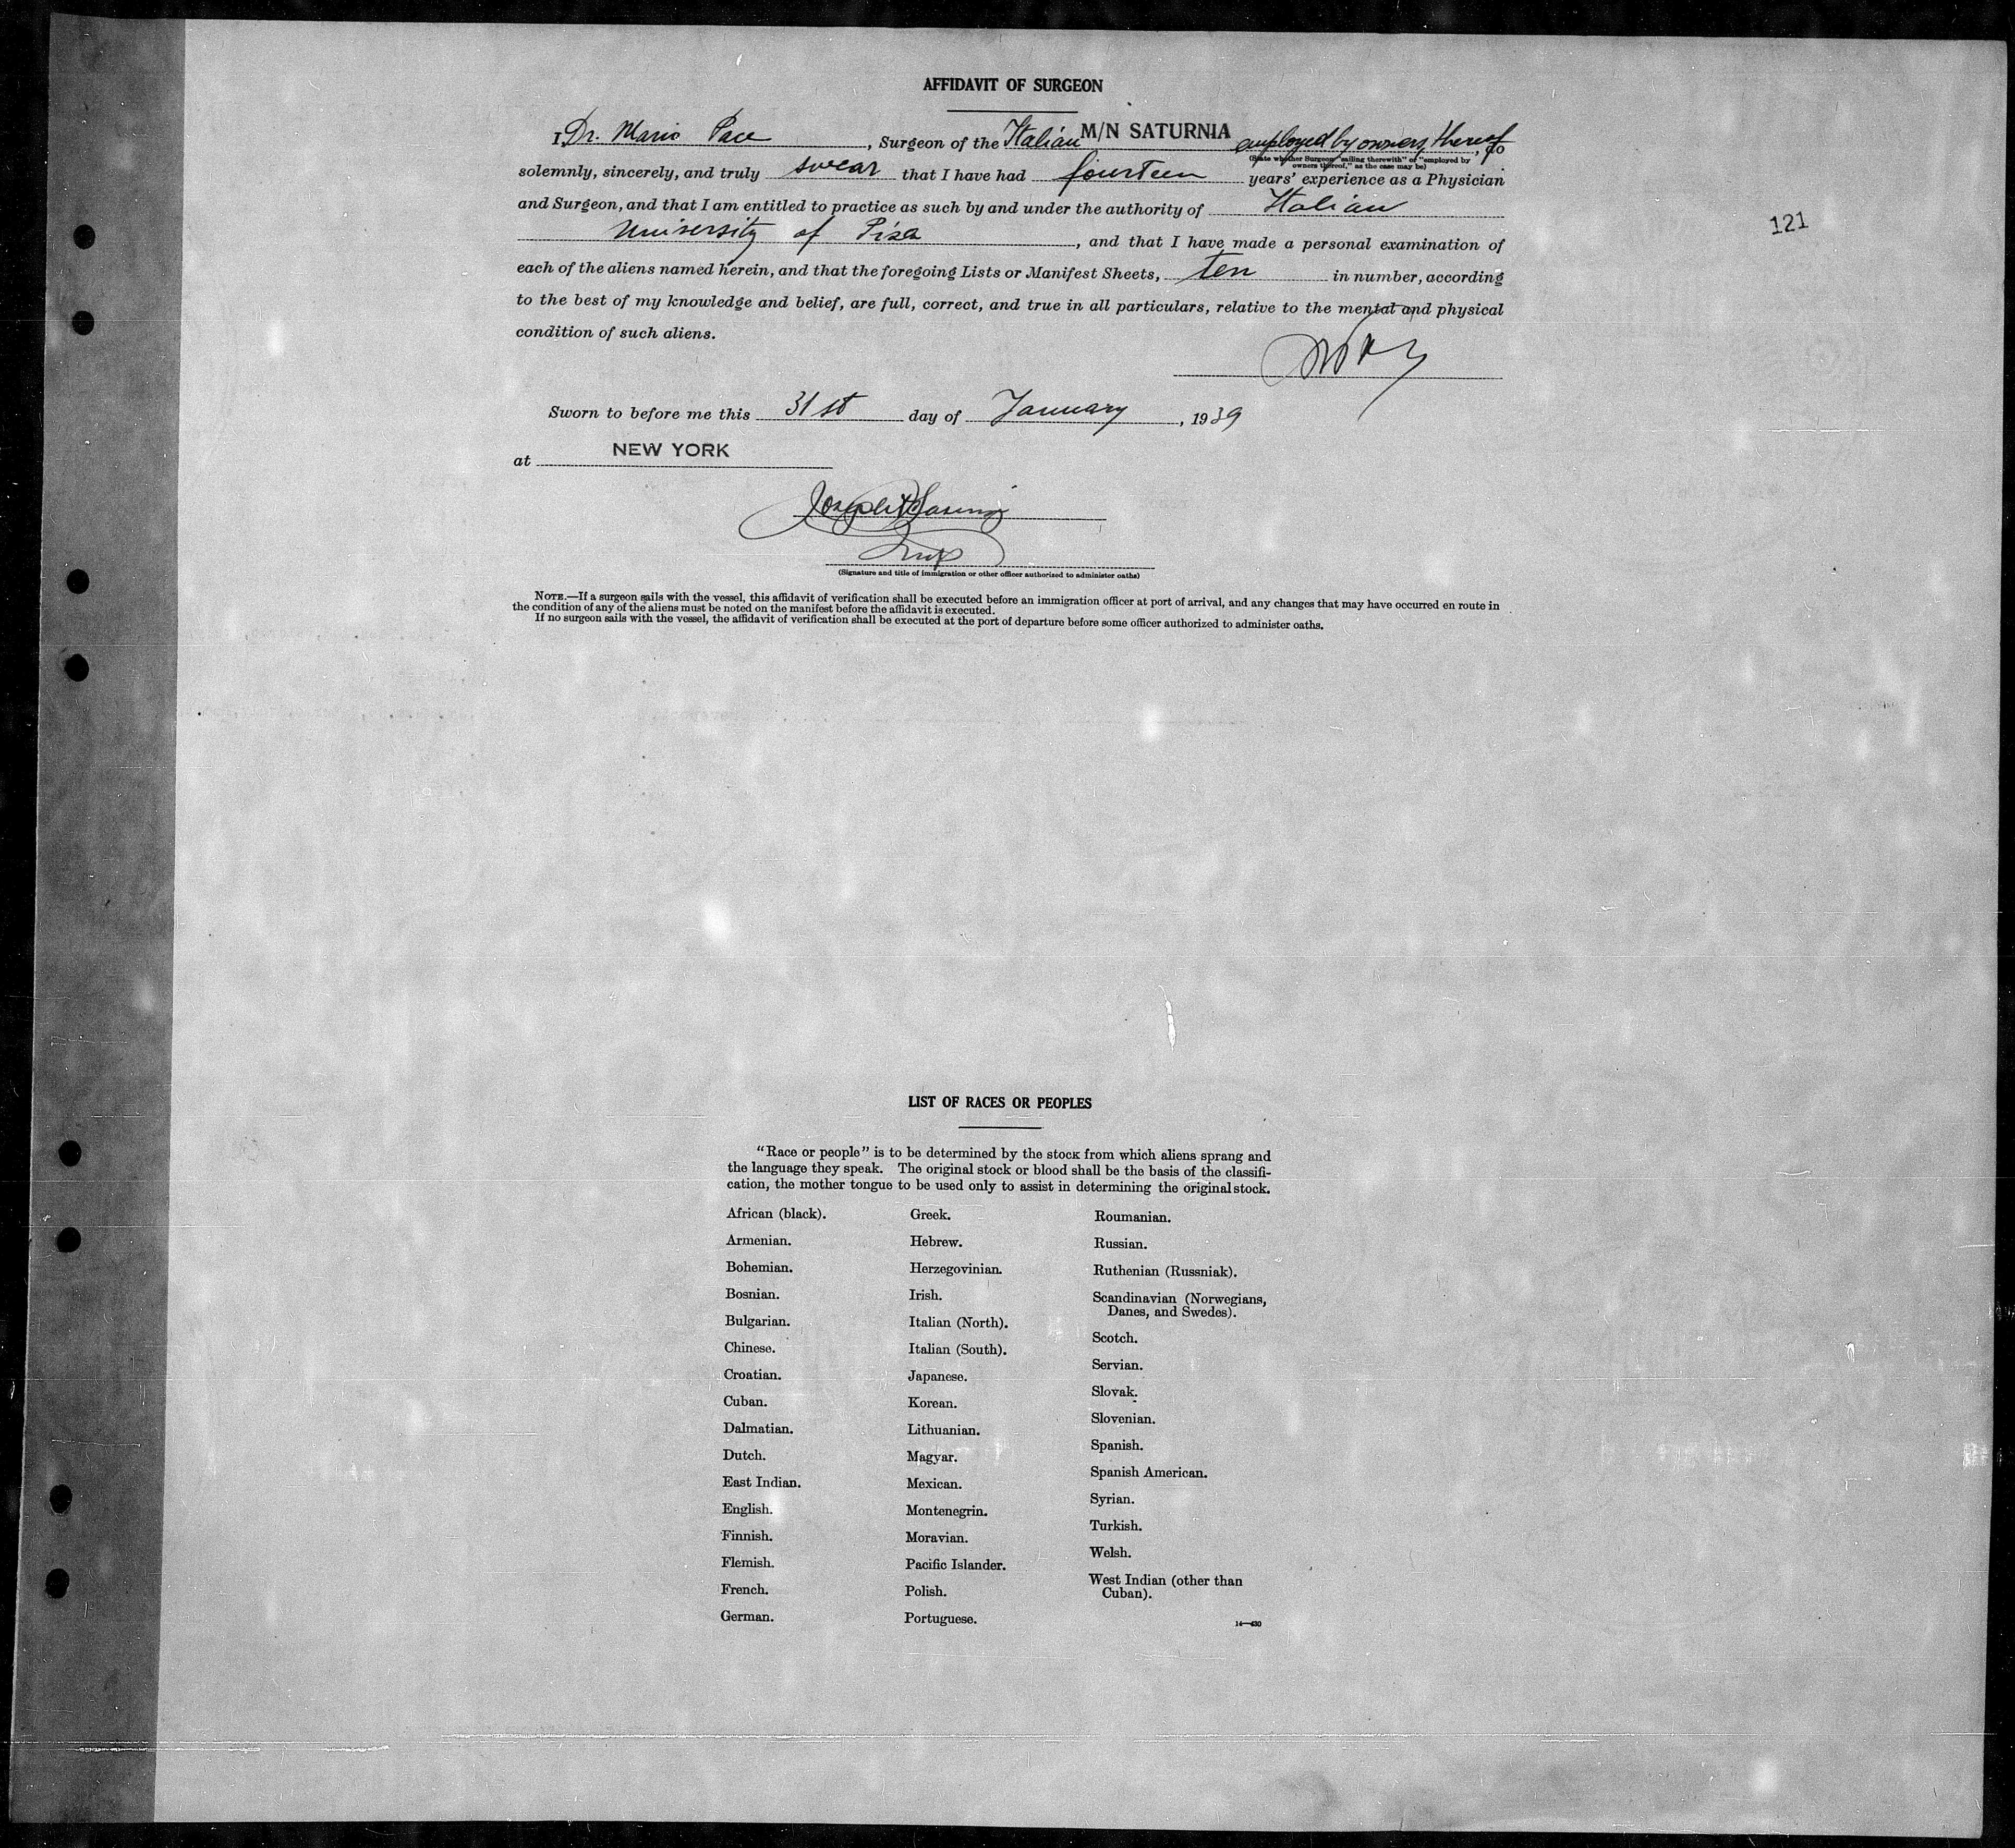 AFFIDAVIT OF SURGEON
I, Dr. Mario Pace, Surgeon of the Italian M/N SATURNIA employed by owners thereof, do
(State whether Surgeon "sailing therewith" or "employed by
owners thereof," as the case may be)
solemnly, sincerely, and truly swear that I have had fourteen years' experience as a Physician
and Surgeon, and that I am entitled to practice as such by and under the authority of Italian
121
University of Pisa, and that I have made a personal examination of
each of the aliens named herein, and that the foregoing Lists or Manifest Sheets, ten in number, according
to the best of my knowledge and belief, are full, correct, and true in all particulars, relative to the mental and physical
condition of such aliens.
Sworn to before me this 31st day of January, 1939
at NEW YORK
Joseph
(Signature and title of immigration or other officer authorized to administer oaths)
NOTE.—If a surgeon sails with the vessel, this affidavit of verification shall be executed before an immigration officer at port of arrival, and any changes that may have occurred en route in
the condition of any of the aliens must be noted on the manifest before the affidavit is executed.
If no surgeon sails with the vessel, the affidavit of verification shall be executed at the port of departure before some officer authorized to administer oaths.
LIST OF RACES OR PEOPLES
"Race or people" is to be determined by the stock from which aliens sprang and
the language they speak. The original stock or blood shall be the basis of the classifi-
cation, the mother tongue to be used only to assist in determining the original stock.
African (black).
Armenian.
Bohemian.
Bosnian.
Bulgarian.
Chinese.
Croatian.
Cuban.
Dalmatian.
Dutch.
East Indian.
English.
Finnish.
Flemish.
French.
German.
Greek.
Hebrew.
Herzegovinian.
Irish.
Italian (North).
Italian (South).
Japanese.
Korean.
Lithuanian.
Magyar.
Mexican.
Montenegrin.
Moravian.
Pacific Islander.
Polish.
Portuguese.
Roumanian.
Russian.
Ruthenian (Russniak).
Scandinavian (Norwegians,
Danes, and Swedes).
Scotch.
Servian.
Slovak.
Slovenian.
Spanish.
Spanish American.
Syrian.
Turkish.
Welsh.
West Indian (other than
Cuban).
14—430